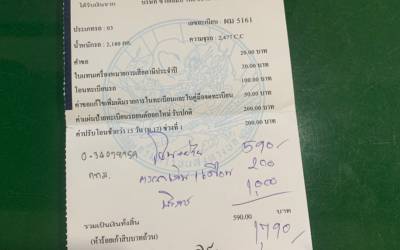 ได้รับเงินจาก
ประเภทรถ : 03 เลขทะเบียน : ผม 5161
น้ำหนักรถ : 2,180 กก. ความจุรถ : 2,477 C.C
ค่าขอ 20.00 บาท
ใบแทนเครื่องหมายการเสียภาษีประจำปี 20.00 บาท
โอนทะเบียนรถ 100.00 บาท
ค่าขอแก้ไขเพิ่มเติมรายการในทะเบียนและในคู่มือจดทะเบียน 50.00 บาท
ค่าแผ่นป้ายทะเบียนรถยนต์ออกใหม่ รับปกติ 200.00 บาท
ค่าปรับโอนช้ากว่า 15 วัน (ม.17) ช่วงที่ 1 200.00 บาท
590/-
กทม. 200
1,000
รวมเป็นเงินทั้งสิ้น 590.00 บาท
(ห้าร้อยเก้าสิบบาทถ้วน) 1,790/-